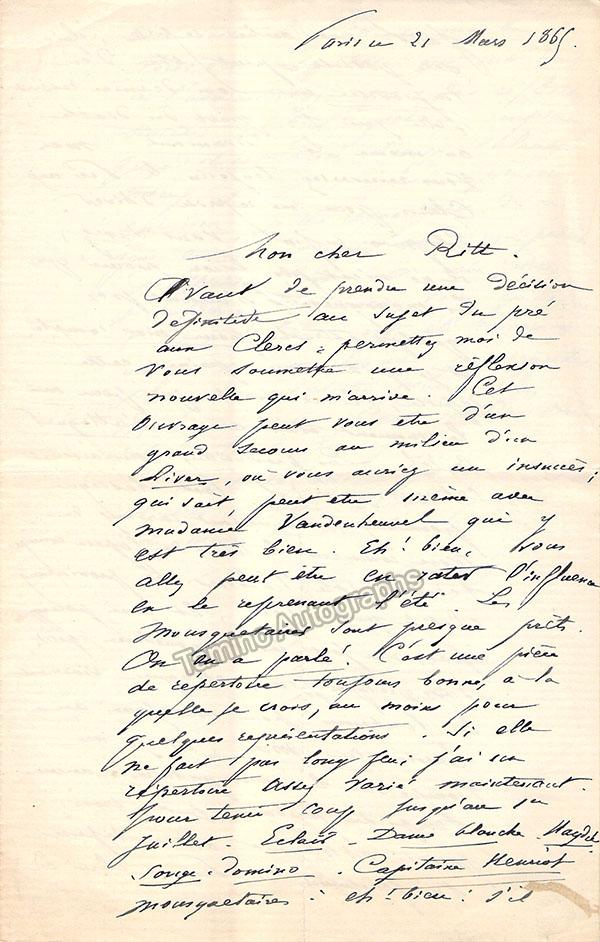 Paris ce 21 Mars 1865.
Mon cher Ritt.
Avant de prendre une décision
definitive au sujet du pré
aux Clercs = permettez moi de
vous soumettre une réflexion
nouvelle qui m'arrive. Cet
ouvrage peut vous etre d'un
grand secours au milieu d'un
hiver, où vous auriez un insuccès;
qui sait peut etre même avec
madame Vandenheuvel qui y
est très bien. Eh! bien, vous
allez peut être en rater l'influence
en le reprenant l'été. Les
Mousquetaires sont presque prêts.
On en a parlé! C'est une pièce
de répertoire toujours bonne, à la
quelle je crois, au moins pour
quelques représentations. Si elle
ne fait pas long feu, j'ai un
répertoire assez varié maintenant
pour tenir coup jusqu'au 1er
Juillet. Eclair. Dame blanche Haydée
Songe. Domino. Capitaine Henriot
mousquetaires: eh! bien! s'il
Tamino Autographs